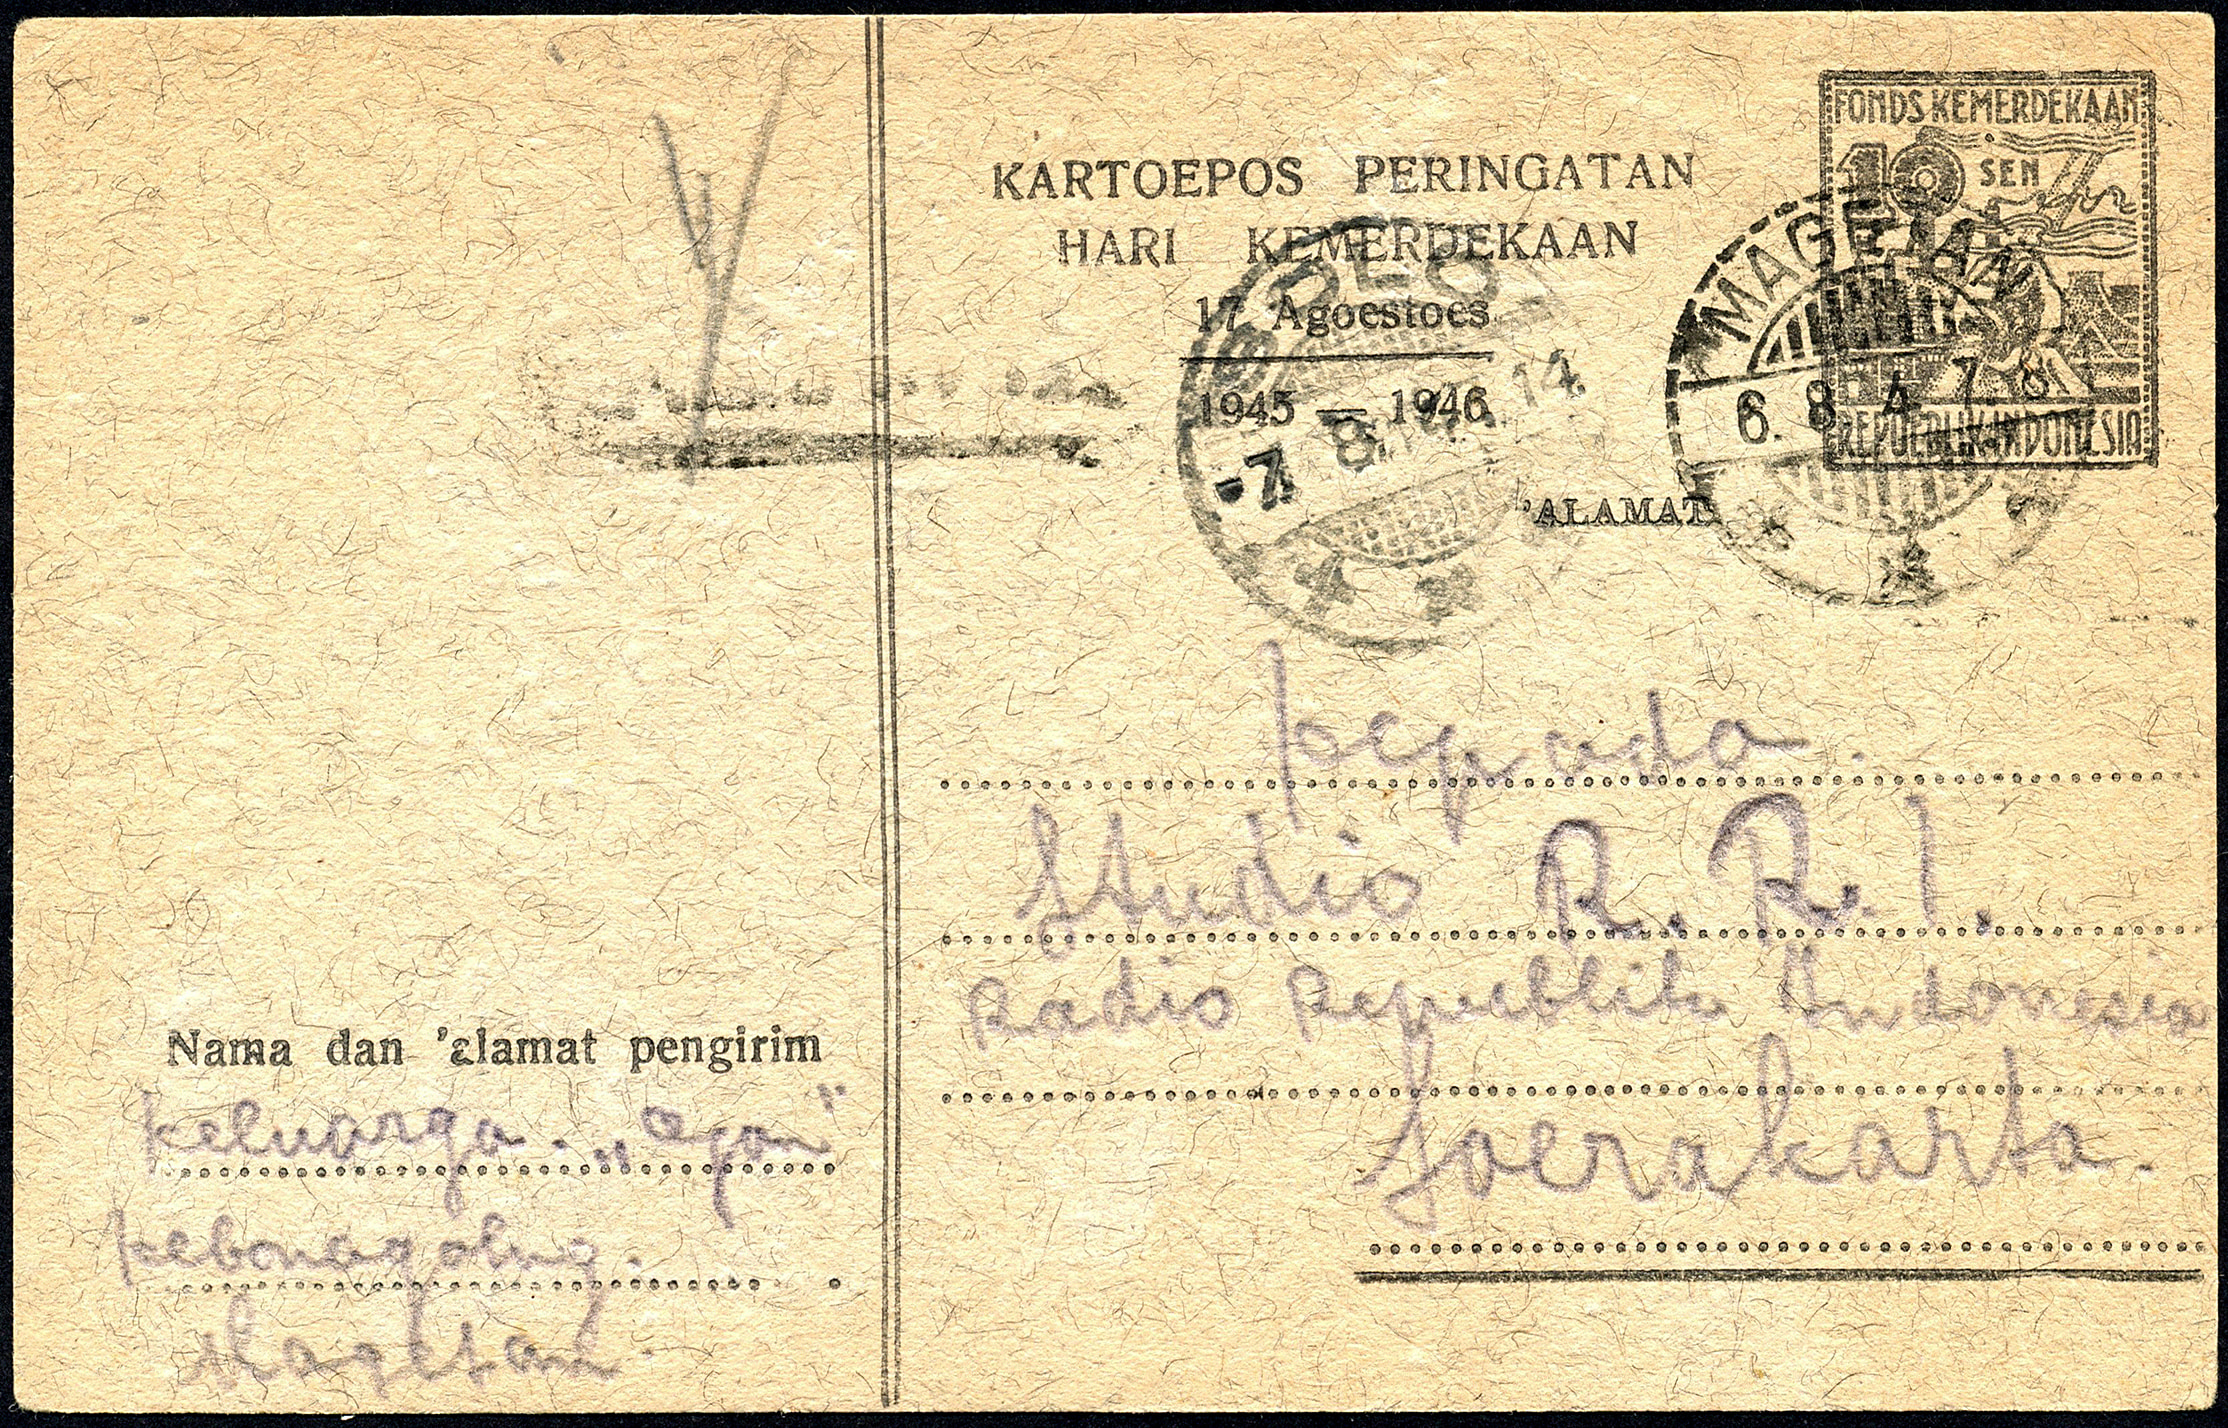 FONDS KEMERDEKAAN
10 SEN
REPOEBLIK INDONESIA
KARTOEPOS PERINGATAN
HARI KEMERDEKAAN
17 Agoestoes
1945 — 1946
SOLO
-7.8.47. 14
MAGETAN
6. 8. 4 7. 8
'ALAMAT
kepada.
Studio R. R. I.
Radio Republik Indonesia
Soerakarta.
Nama dan 'alamat pengirim
keluarga. „
kebonagoeng.
Magetan